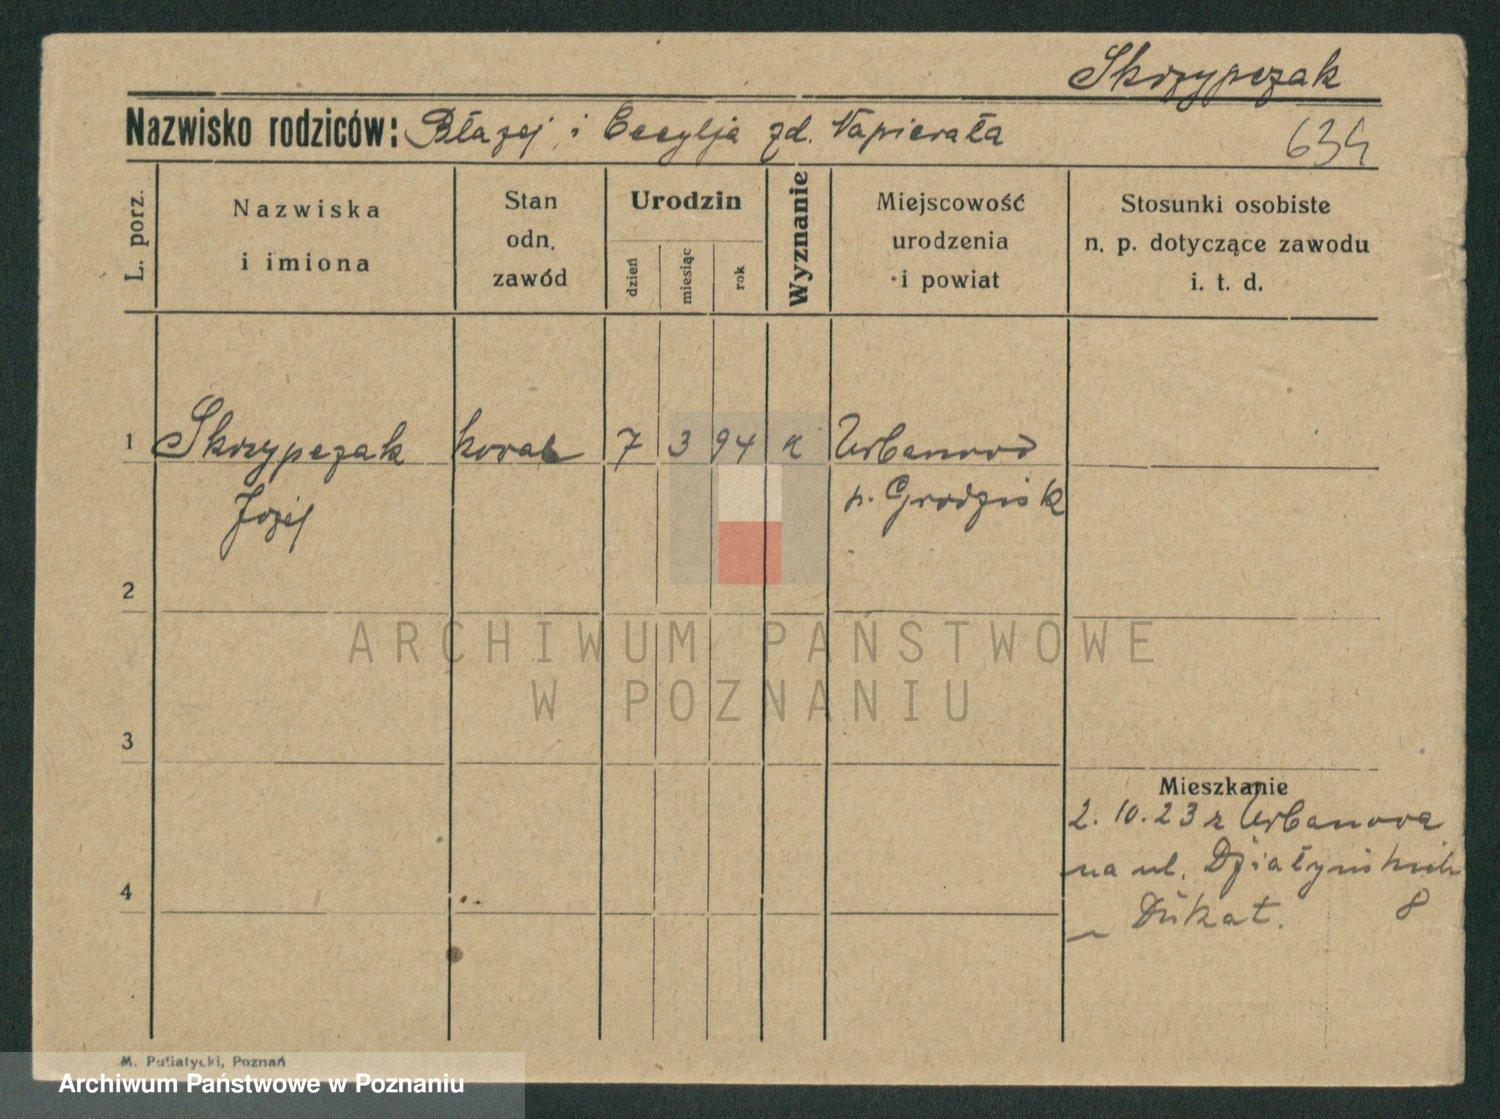 Skrzypczak
Nazwisko rodziców: Błażej i Cecylja zd. Napierała
634
L. porz.
Nazwiska
i imiona
Stan
odn.
zawód
Urodzin
dzień
miesiąc
rok
Wyznanie
Miejscowość
urodzenia
i powiat
Stosunki osobiste
n. p. dotyczące zawodu
i. t. d.
1 Skrzypczak 7 3 94 k Urbanowo
Józef p. Grodzisk
2
ARCHIWUM PAŃSTWOWE
W POZNANIU
3
Mieszkanie
2. 10. 23 z Urbanowa
na ul. Działyńskich
8
4
Dukat.
M. Putiatycki, Poznań
Archiwum Państwowe w Poznaniu